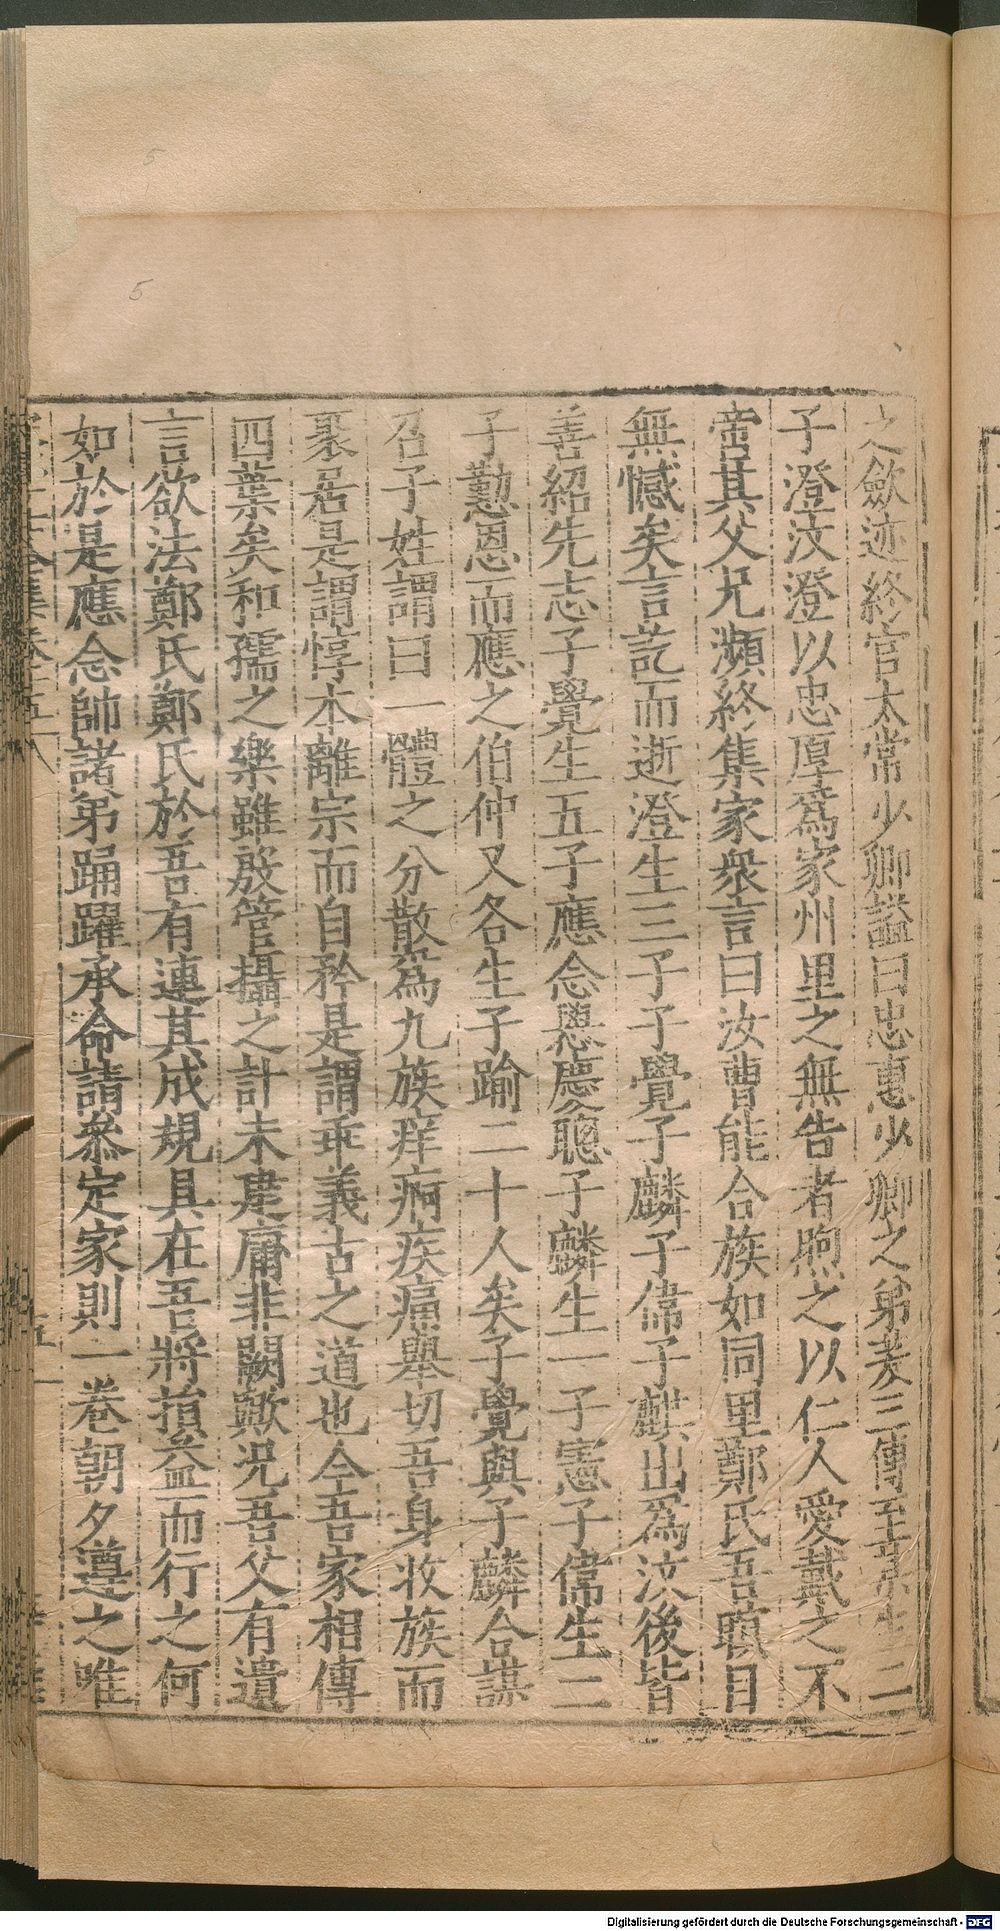 之歛迹終官太常少卿謚曰忠惠少卿之弟羙三傳至 生二
子澄汶澄以忠厚爲家州里之無告者煦之以仁人愛戴之不
啻其父兄瀕終集家衆言曰汝曹能合族如同里鄭氏吾瞑目
無憾矣言訖而逝澄生三子子覺子麟子偉子麒出爲汶後皆
善紹先志子覺生五子應念 慶聰子麟生一子憲子偉生二
子懃恩而應之伯仲又各生子踰二十人矣子覺與子麟合謀
召子姓謂曰一體之分散爲九族痒痾疾痛舉切吾身收族而
聚居是謂惇本離宗而自矜是謂乖義古之道也今吾家相傳
四葉矣和孺之樂雖殷管攝之計未建庸非闕歟況吾父有遺
言欲法鄭氏鄭氏於吾有連其成規具在吾將損益而行之何
如於是應念帥諸弟踊躍承命請叅定家則一卷朝夕遵之唯
5
5
Digitalisierung gefördert durch die Deutsche Forschungsgemeinschaft - DFG